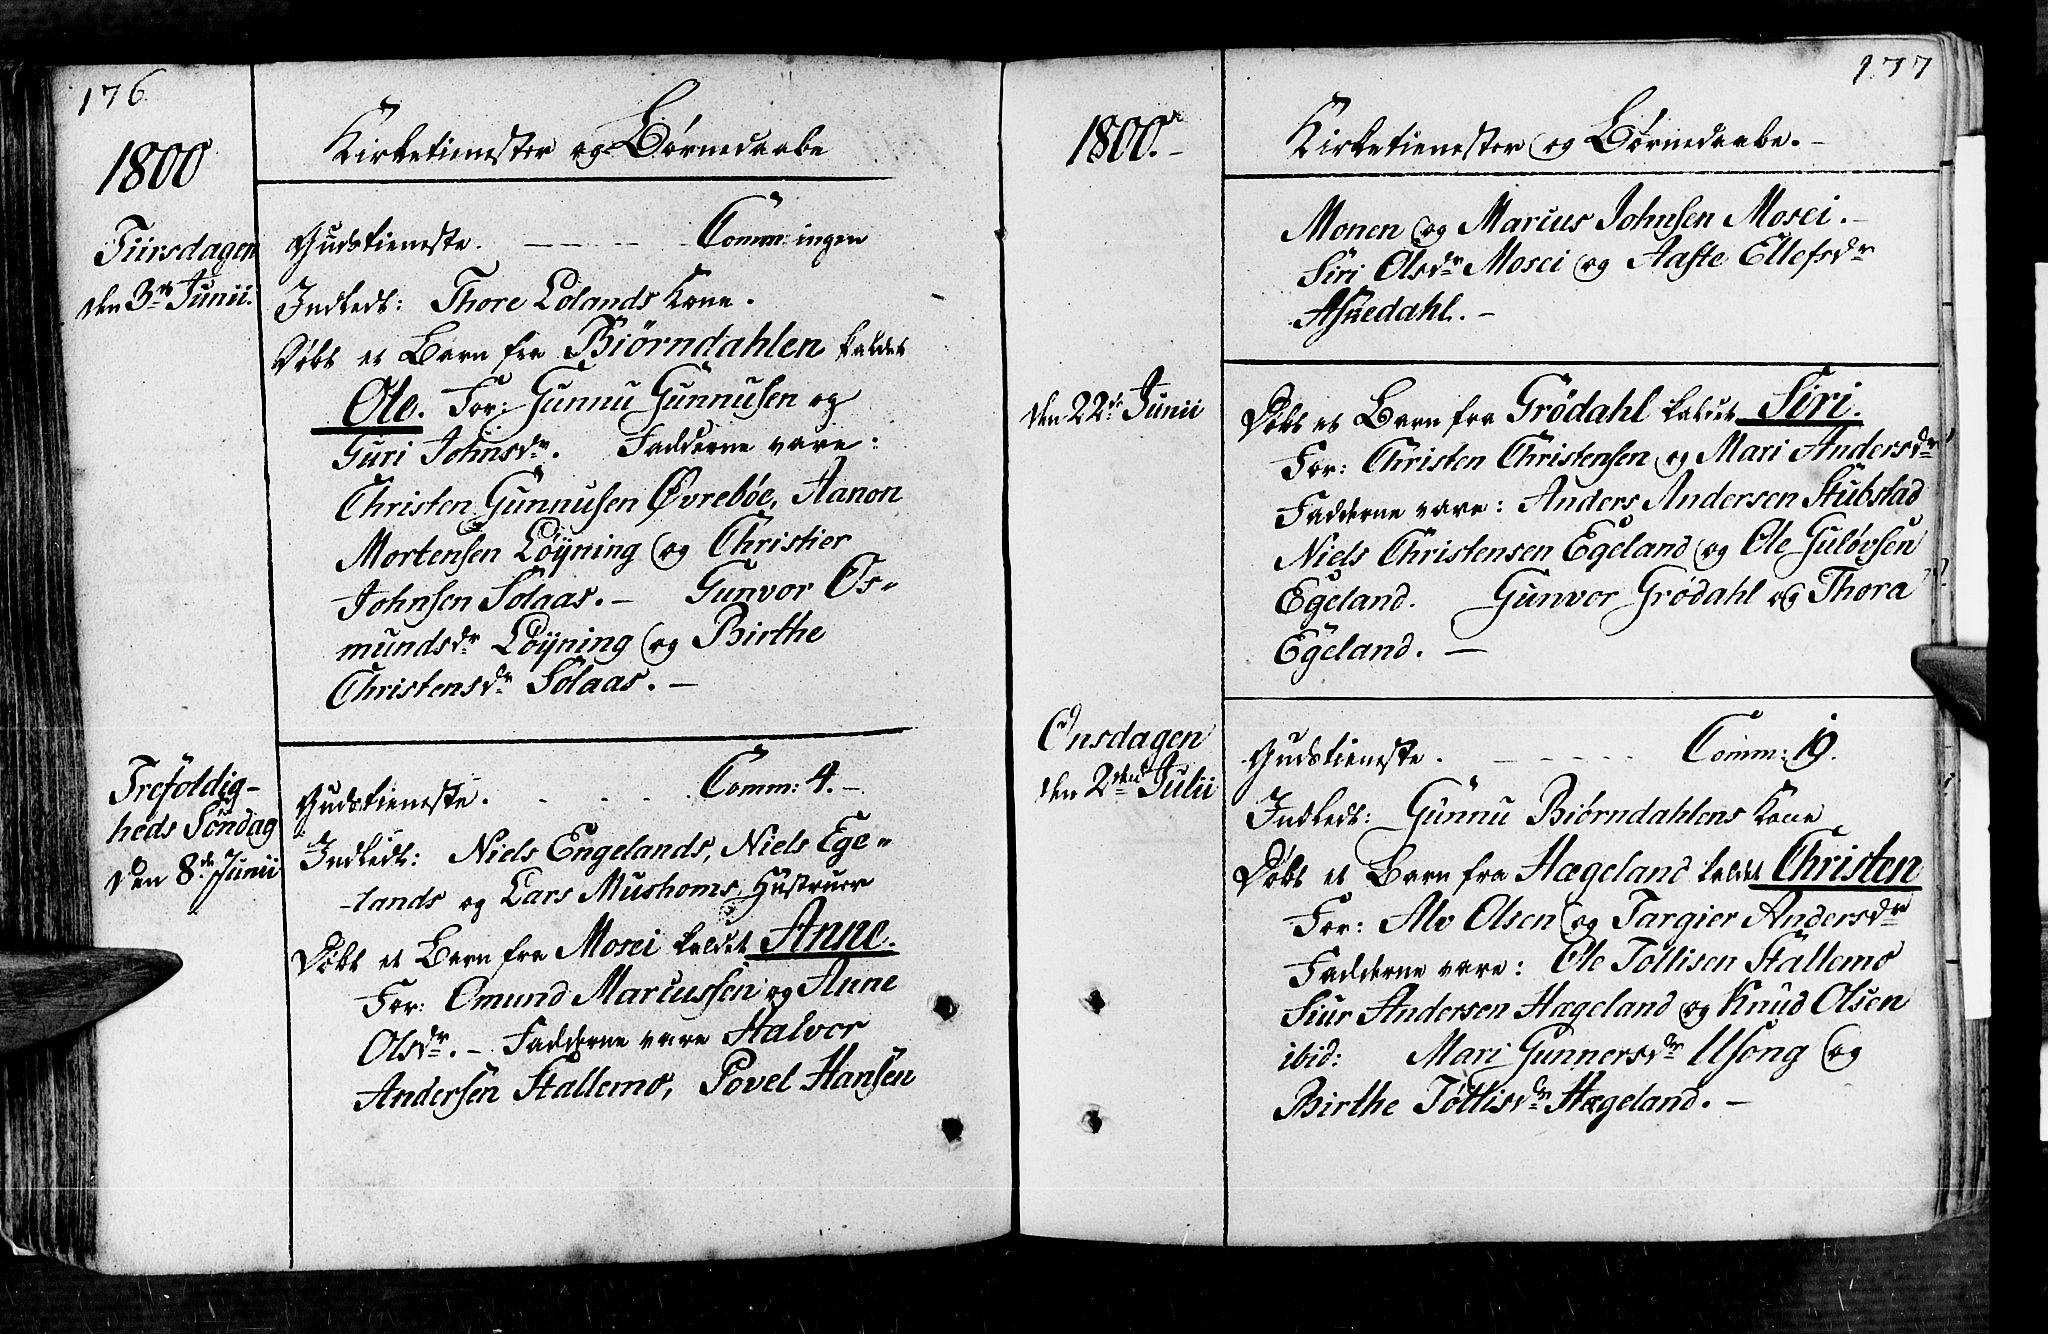 176
1800
Kirketienester og Børnedaabe
Tiirsdagen
den 3die Junii.
Gudstieneste. - - - - Comm: ingen
Indledt: Thore Lølands Kone.
Døbt et Barn fra Biörndahlen kaldet
Ole. For: Gunnu Gunnusen og
Guri Johnsdr. Fadderne vare:
Christen Gunnusen Øvrebøe, Aanon
Mortensen Löÿning og Christier
Johnsen Solaas. - Gunvor Os-
mundsdr Löÿning og Birthe
Christensdr Solaas. -
Trefoldig-
heds Söndag
den 8de Junii
Gudstieneste. - - - Comm: 4. -
Indledt: Niels Engelands, Niels Ege-
lands og Lars Mushoms Hustruer
Döbt et Barn fra Mosei kaldet Anne.
For: Omund Marcussen og Anne
Olsdr. - Fadderne vare Halvor
Andersen Stallemo, Povel Hansen
177
1800. -
Kirketienester og Børnedaabe. -
Monen og Marcus Johnsen Mosei. -
Siri Olsdr Mosei og Aaste Ellefsdr
Asuedahl. -
den 22de Junii
Döbt et Barn fra Grödahl kaldet Siri.
For: Christen Christensen og Mari Andersdr
Fadderne vare: Anders Andersen Stubstad
Niels Christensen Egeland og Ole Gulövsen
Egeland. Gunvor Grödahl og Thora
Egeland. -
Onsdagen
den 2den Julii
Gudstieneste. - - - - Comm: 19.
Indledt: Gunnu Biörndahlens Kone
Döbt et Barn fra Hægeland kaldet Christen
For: Alv Olsen og Targier Andersdr
Fadderne vare: Ole Tollisen Stallemo
Siur Andersen Hægeland og Knud Olsen
ibid: Mari Gunnersdr Usong og
Birthe Töllisdr Hægeland. -